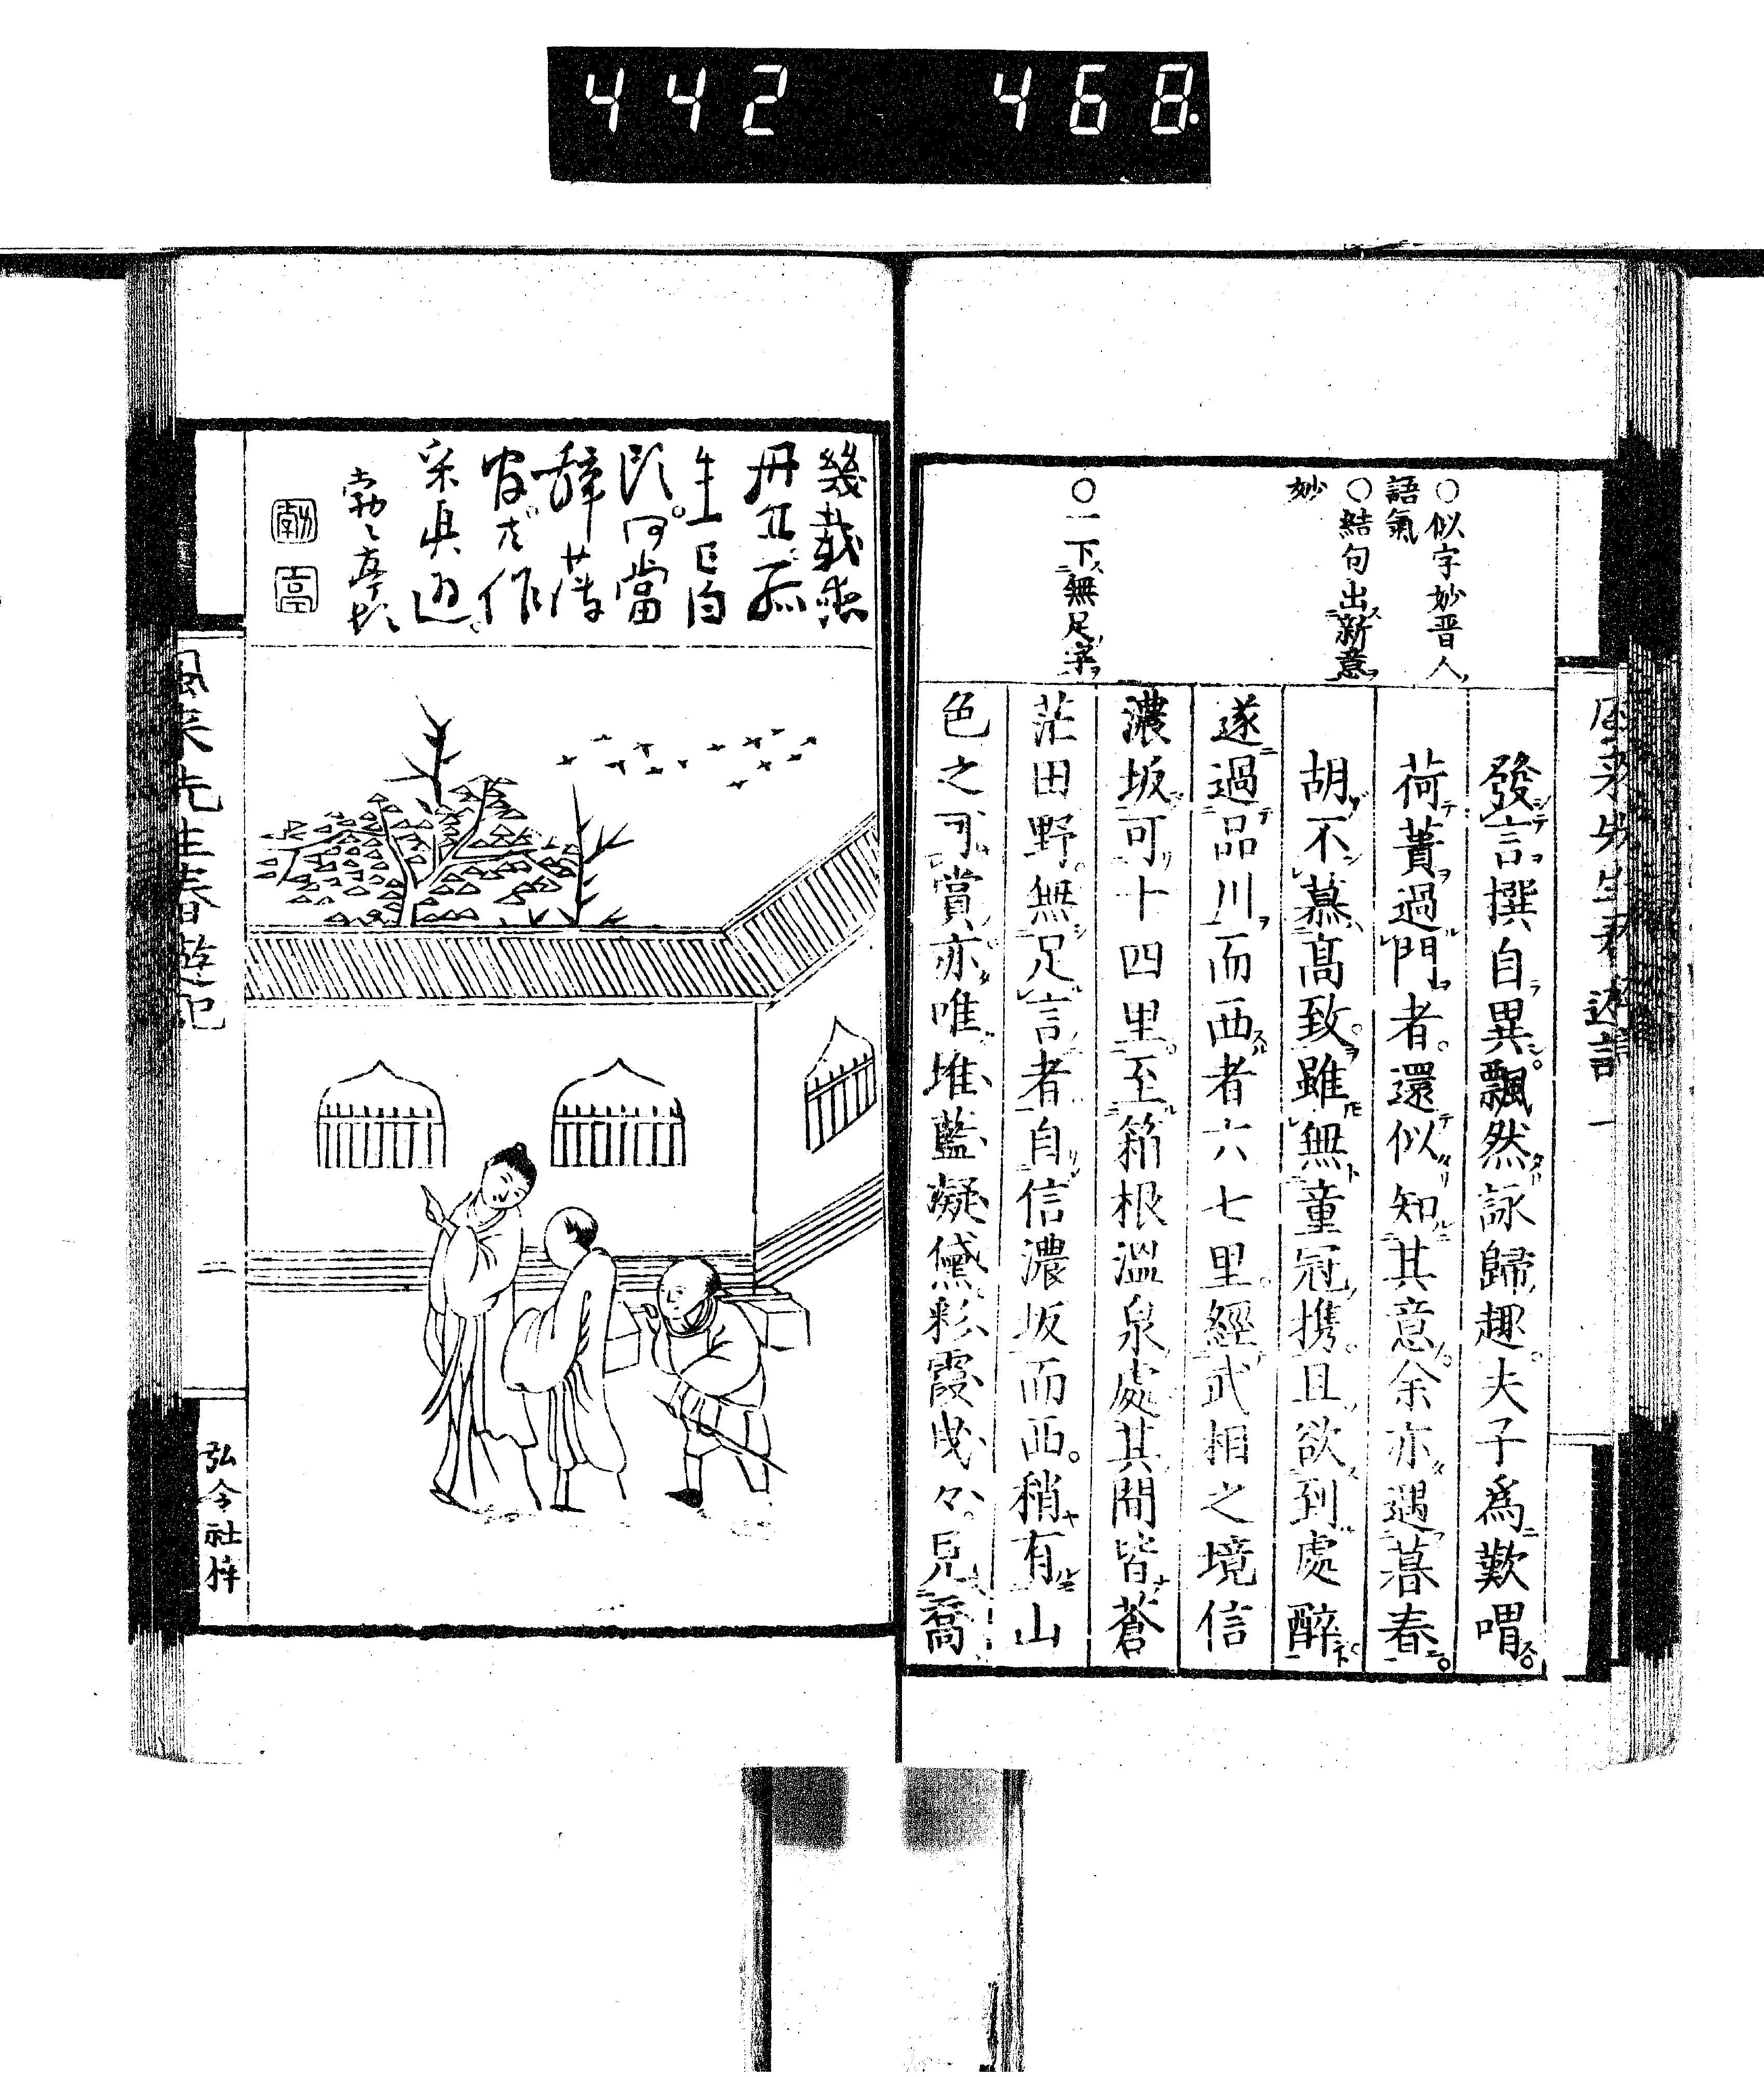 442 468
○似字妙晋人
語氣
○結句出新意
妙
○一下無足字
發言撰自異飄然詠歸趣夫子爲歎喟
荷蕢過門者還似知其意余亦遇暮春
胡不慕髙致雖無童冠携且欲到處醉
遂過品川而西者六七里經武相之境信
濃坂可十四里至箱根溫泉處其間皆蒼
茫田野無足言者自信濃坂而西稍有山
色之可賞亦唯堆藍凝黛彩霞曳々見喬
幾載無
生正自
何當
辭薄
作
采真遊
勃々亭
風來先生春遊記
二
弘令社梓